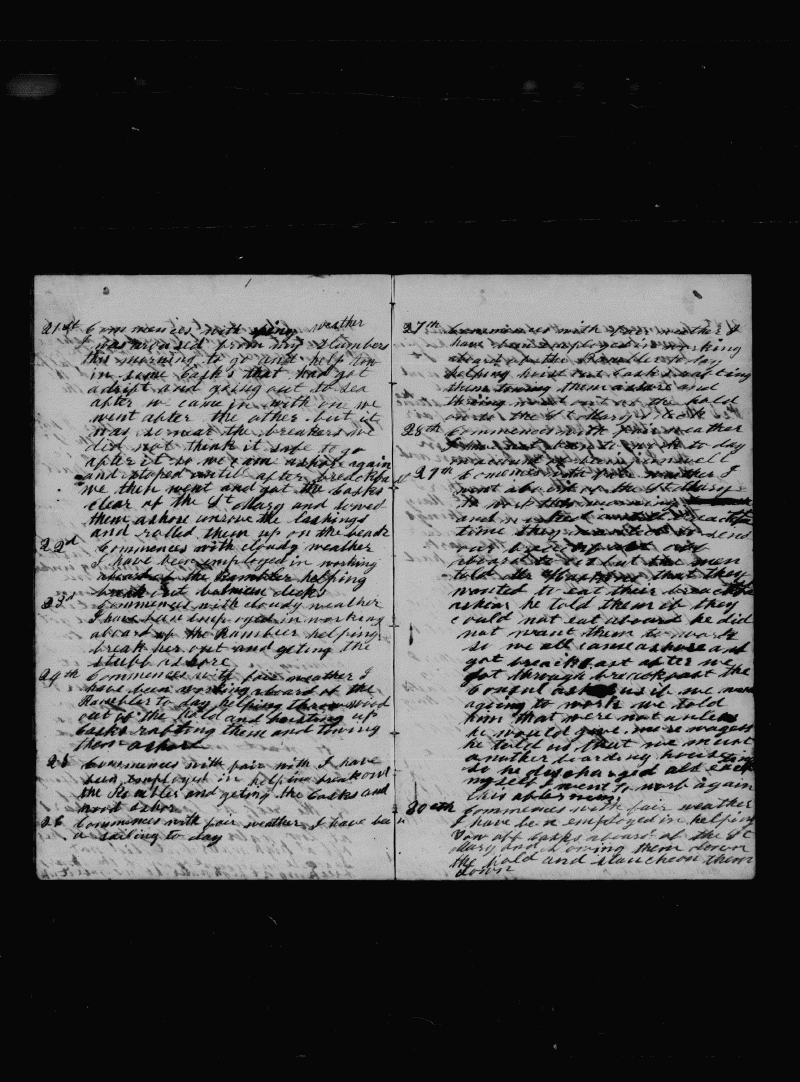 21st Commences with weather
I was aroused from my Slumbers
this morning to go and help tow
in some Casks that had got
adrift and going out to sea
after we came in with one we
went after the other but it
was so near the breakers we
did not think it safe to go
after it so we came ashore again
and stoped until after breackfa
we then went and got the Casks
clear of the St Mary and towed
them ashore the lashings
and rolled them up on the beach
22d Commences with cloudy weather
I have been employed in working
aboard of the Rambler helping
break out between decks
23d Commences with cloudy weather
I have been employed in working
aboard of the Rambler helping
break her out and geting the
stuff ashore
24th Commences with fair weather I
have been working aboard of the
Rambler to day helping throw wood
out of the Hold and hoisting up
Casks rafting them and towing
them ashore
25 Commences with fair with I have
been employed in helping breakout
the Rambler and geting the Casks and
ashor
26 Commences with fair weather I have bee
a sailing to day
27th Commences with fair weather I
have been employed in working
aboard of the Rambler to day
helping hoist out Casks rafting
them towing them ashore and
out in the hold
of the St Mary
28th Commences with fair weather
I have not been to work to day
on account of being unwell
29th Commences with fair weather I
went aboard of the St Mary
to work this morning
and worked until breackfa
time they wanted to send
our breackfast off
aboard to us but the men
told that they
wanted to eat their breackfa
ashore he told them if they
could not eat aboard he did
not want them to work
so we all came ashore and
got breackfast after we
got through breackfast the
Consul asked us if we was
agoing to work we told
him that were not unless
he would give more wages
he told us that we must
another boarding house
so he discharged all
myself I went to work again
this afternoon
30th Commences with fair weather
I have been employed in helping
tow off Casks aboard of the St
Mary and stowing them down
the hold and stauncheon them
down